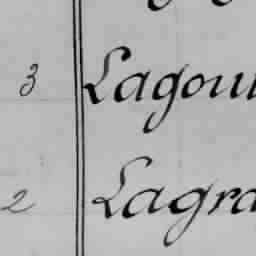 3 Lagou
2 Lagra